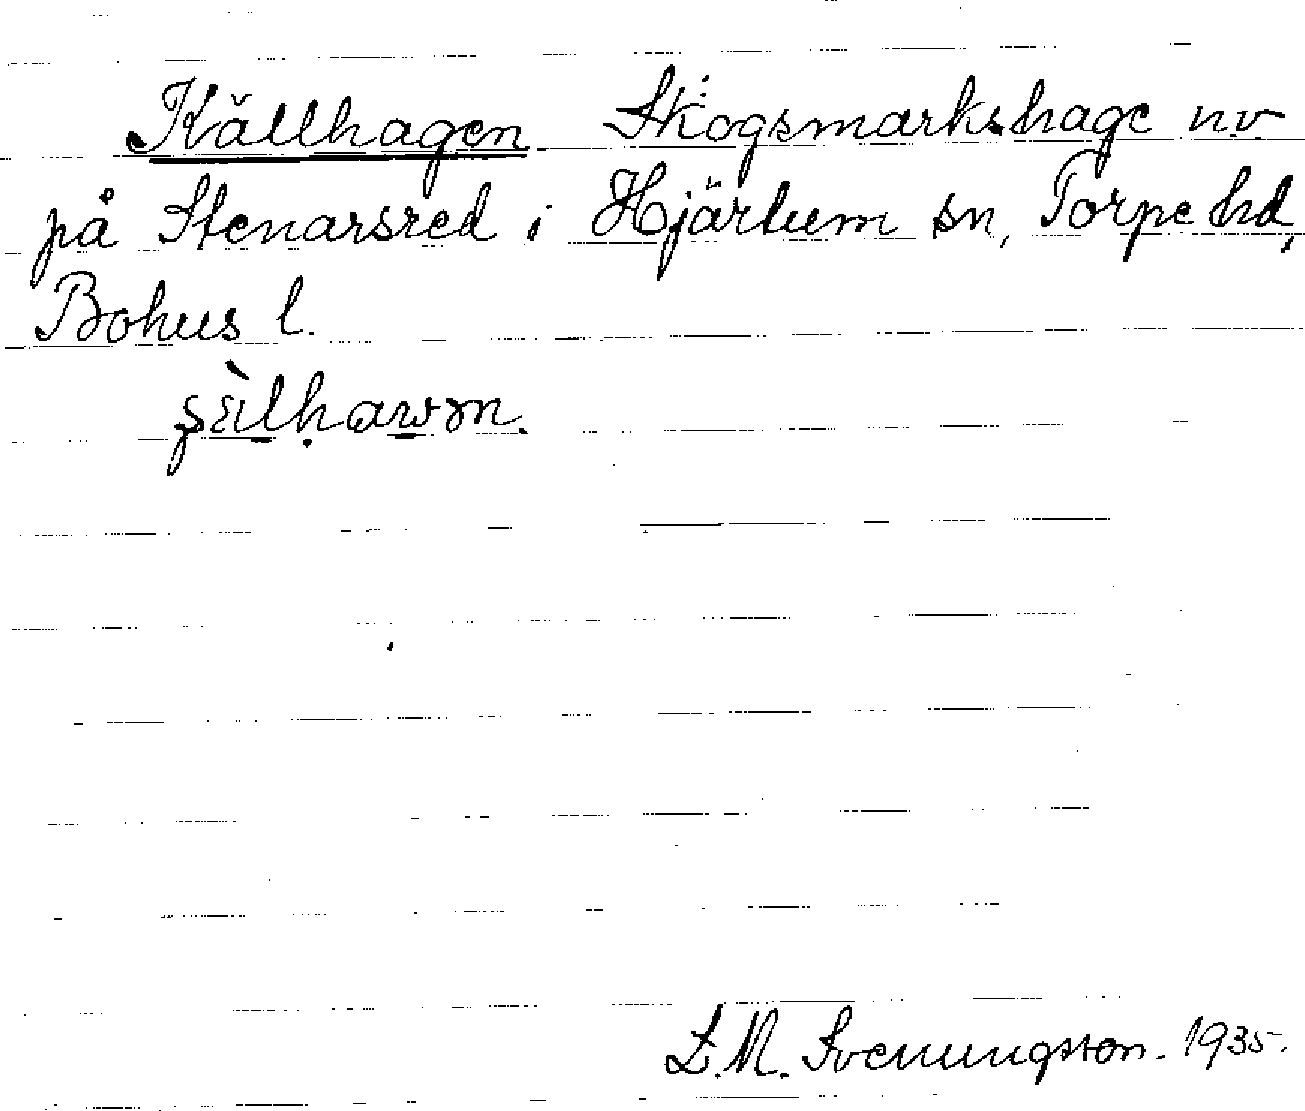 Källhagen Skogsmarkshage nv
på Stenarsred i Hjärtum sn, Torpe hd,
Bohus l.
D.M. Svenungsson. 1935.